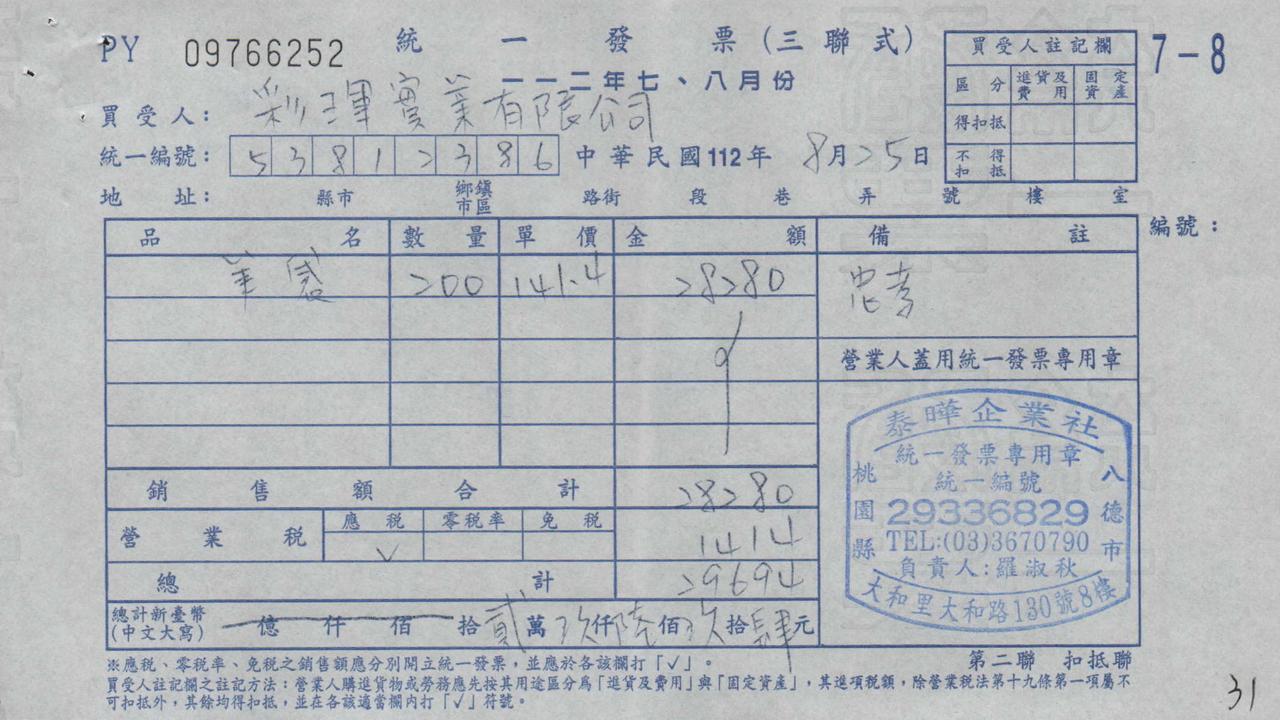 PY 09766252 統一發票(三聯式) 7-8
一一二年七、八月份
買受人註記欄
區分 進貨及費用 固定資產
得扣抵
不得扣抵
買受人: 彩琿實業有限公司
統一編號: 53812386 中華民國112年 8月25日
地址: 縣市 鄉鎮市區 路街 段 巷 弄 號 樓 室
編號:
品名 數量 單價 金額 備註
200 141.4 28280 忠孝
營業人蓋用統一發票專用章
銷售額合計 28280
營業稅 應稅 零稅率 免稅 1414
✓
總計 29694
總計新臺幣(中文大寫) 億仟佰拾貳萬玖仟陸佰玖拾肆元
泰曄企業社
統一發票專用章
統一編號
29336829
TEL:(03)3670790
負責人:羅淑秋
桃園縣 八德市
大和里大和路130號8樓
※應稅、零稅率、免稅之銷售額應分別開立統一發票,並應於各該欄打「✓」。
第二聯 扣抵聯
買受人註記欄之註記方法:營業人購進貨物或勞務應先按其用途區分為「進貨及費用」與「固定資產」,其進項稅額,除營業稅法第十九條第一項屬不
可扣抵外,其餘均得扣抵,並在各該適當欄內打「✓」符號。
31